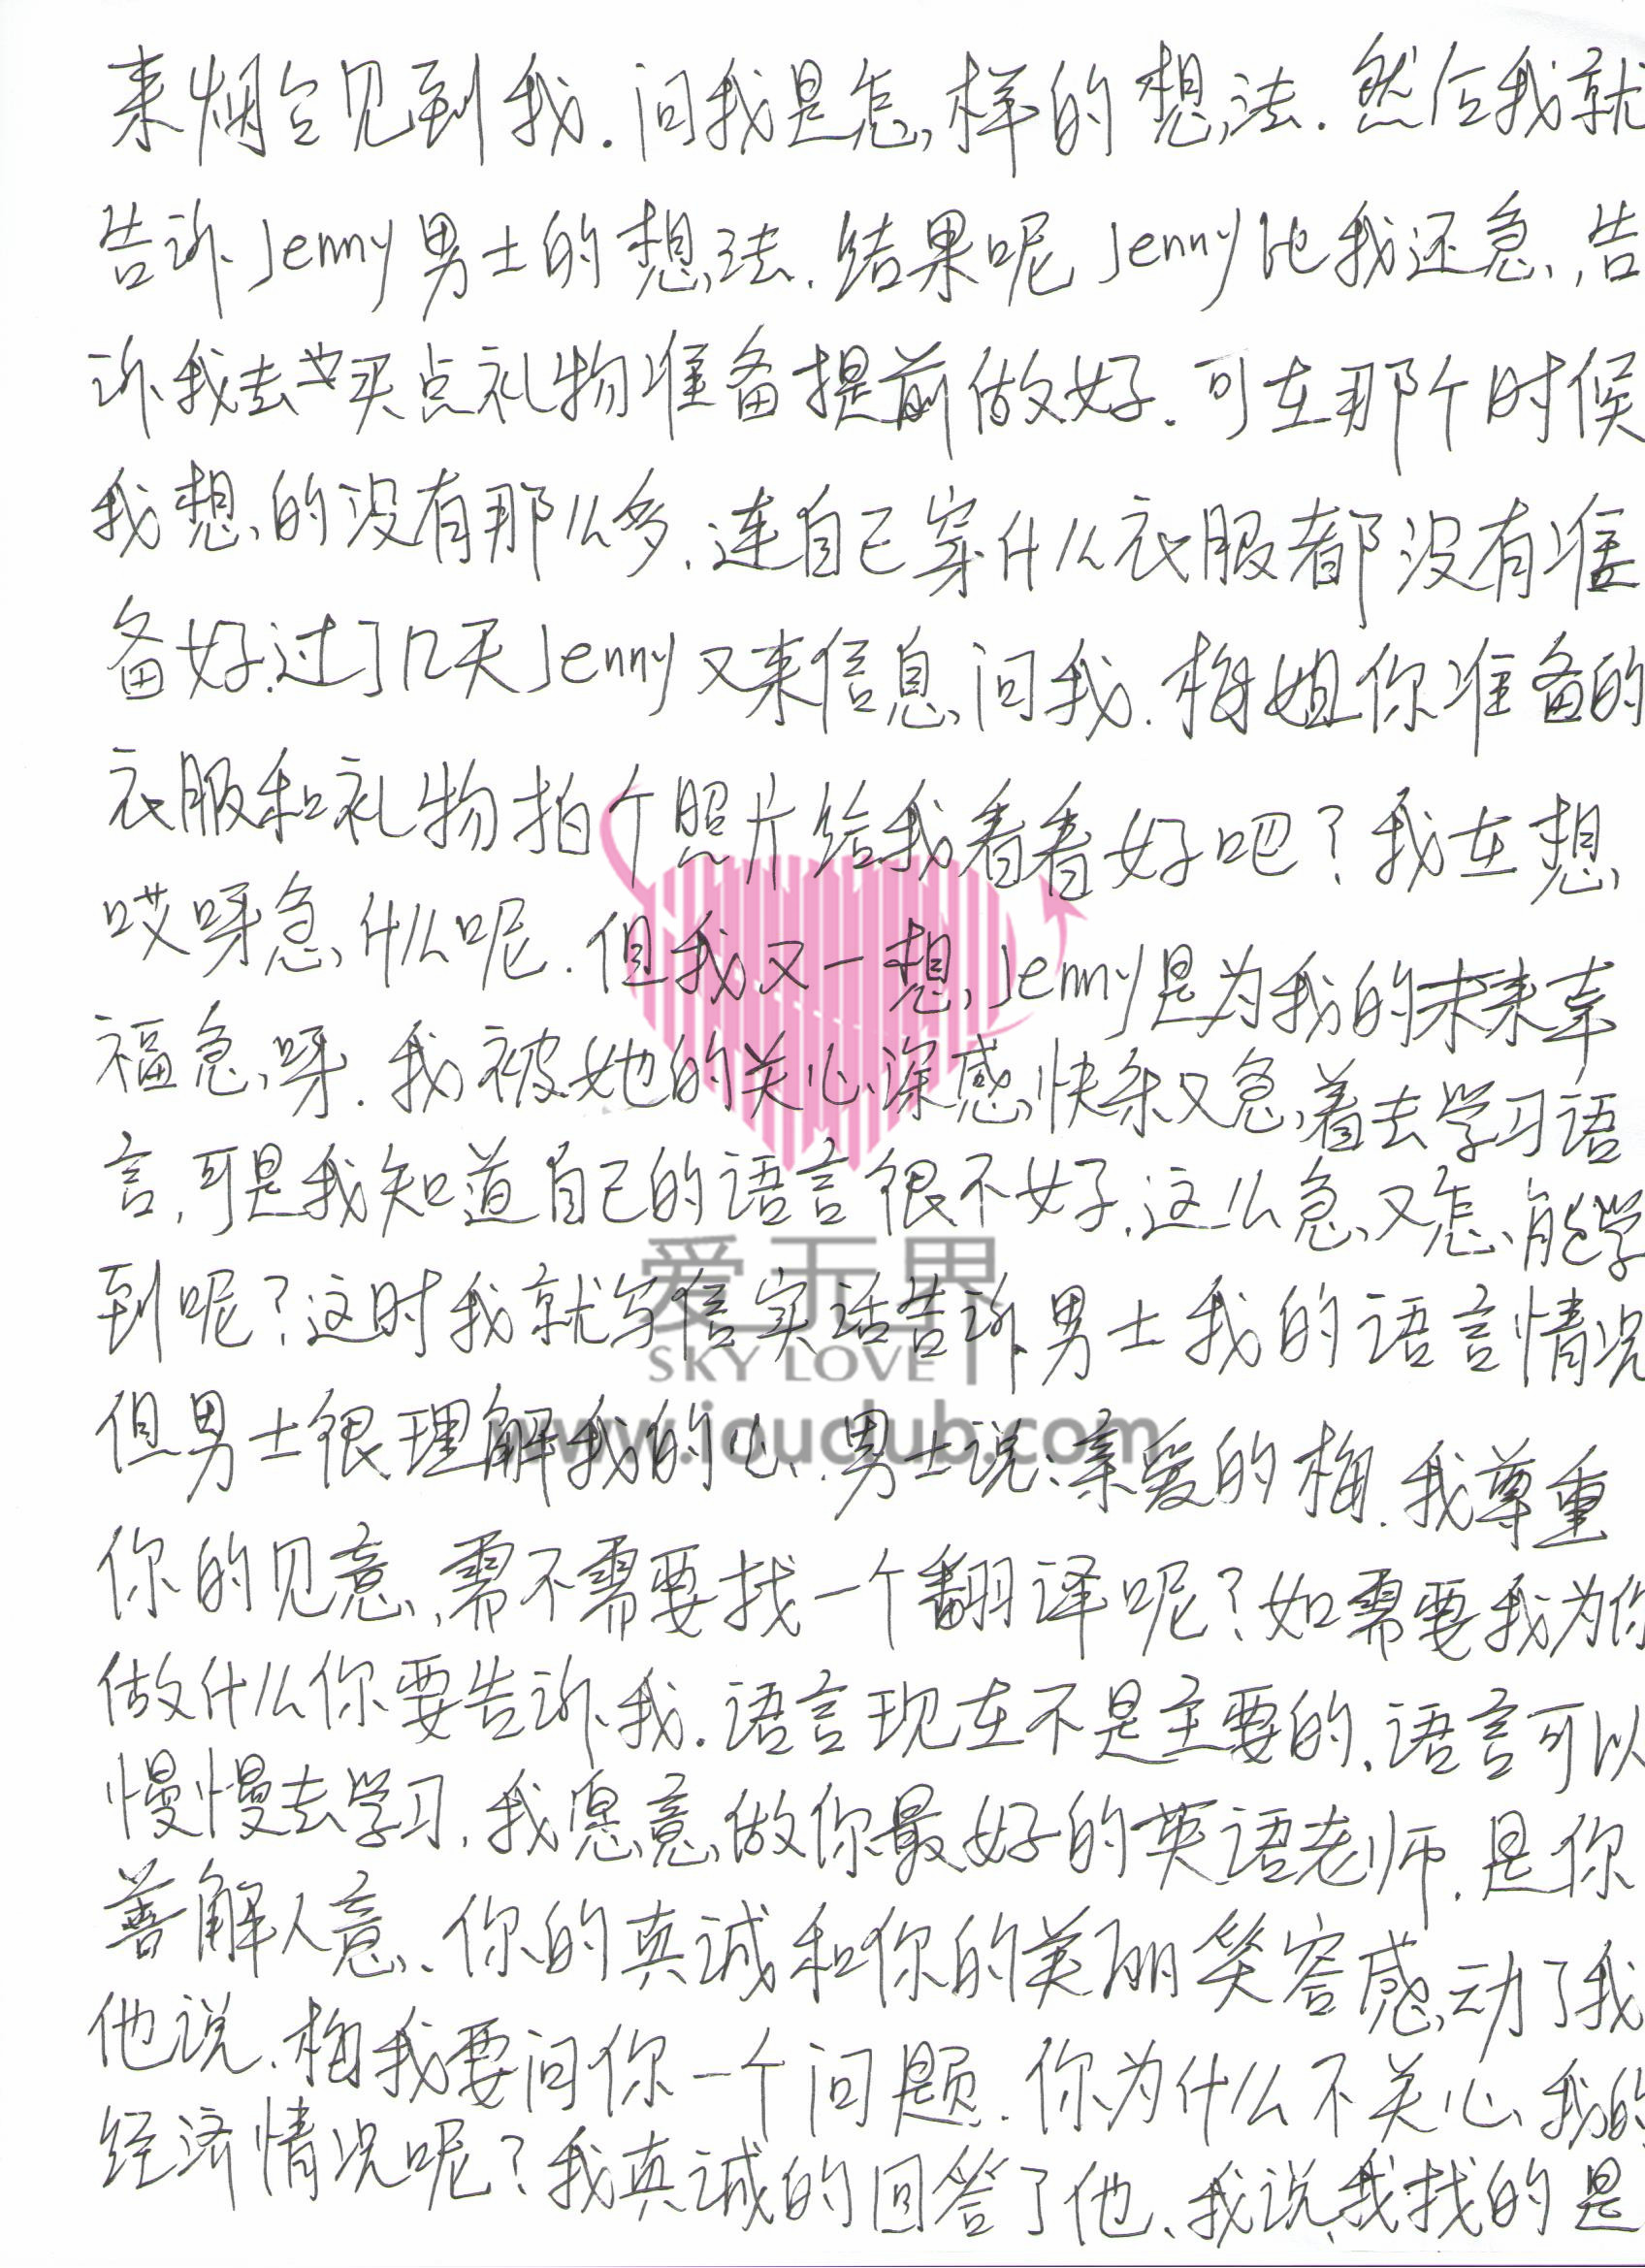 来烟台见到我.问我是怎样的想法.然后我就
告诉Jenny男士的想法.结果呢Jenny比我还急,告
诉我去买点礼物准备提前做好.可在那个时候
我想的没有那么多.连自己穿什么衣服都没有准
备好.过了几天Jenny又来信息问我.梅姐你准备的
衣服和礼物拍个照片给我看看好吧?我在想
哎呀急什么呢.但我又一想Jenny是为我的未来幸
福急呀.我被她的关心深感快乐又急着去学习语
言,可是我知道自己的语言很不好.这么急又怎能学
到呢?这时我就写信实话告诉男士我的语言情况
爱无界
SKY LOVE
但男士很理解我的心.男士说:亲爱的梅.我尊重
www.iouclub.com
你的见意,需不需要找一个翻译呢?如需要我为你
做什么你要告诉我.语言现在不是主要的.语言可以
慢慢去学习.我愿意做你最好的英语老师.是你
善解人意、你的真诚和你的美丽笑容感动了我
他说.梅我要问你一个问题.你为什么不关心我的
经济情况呢?我真诚的回答了他、我说我找的是